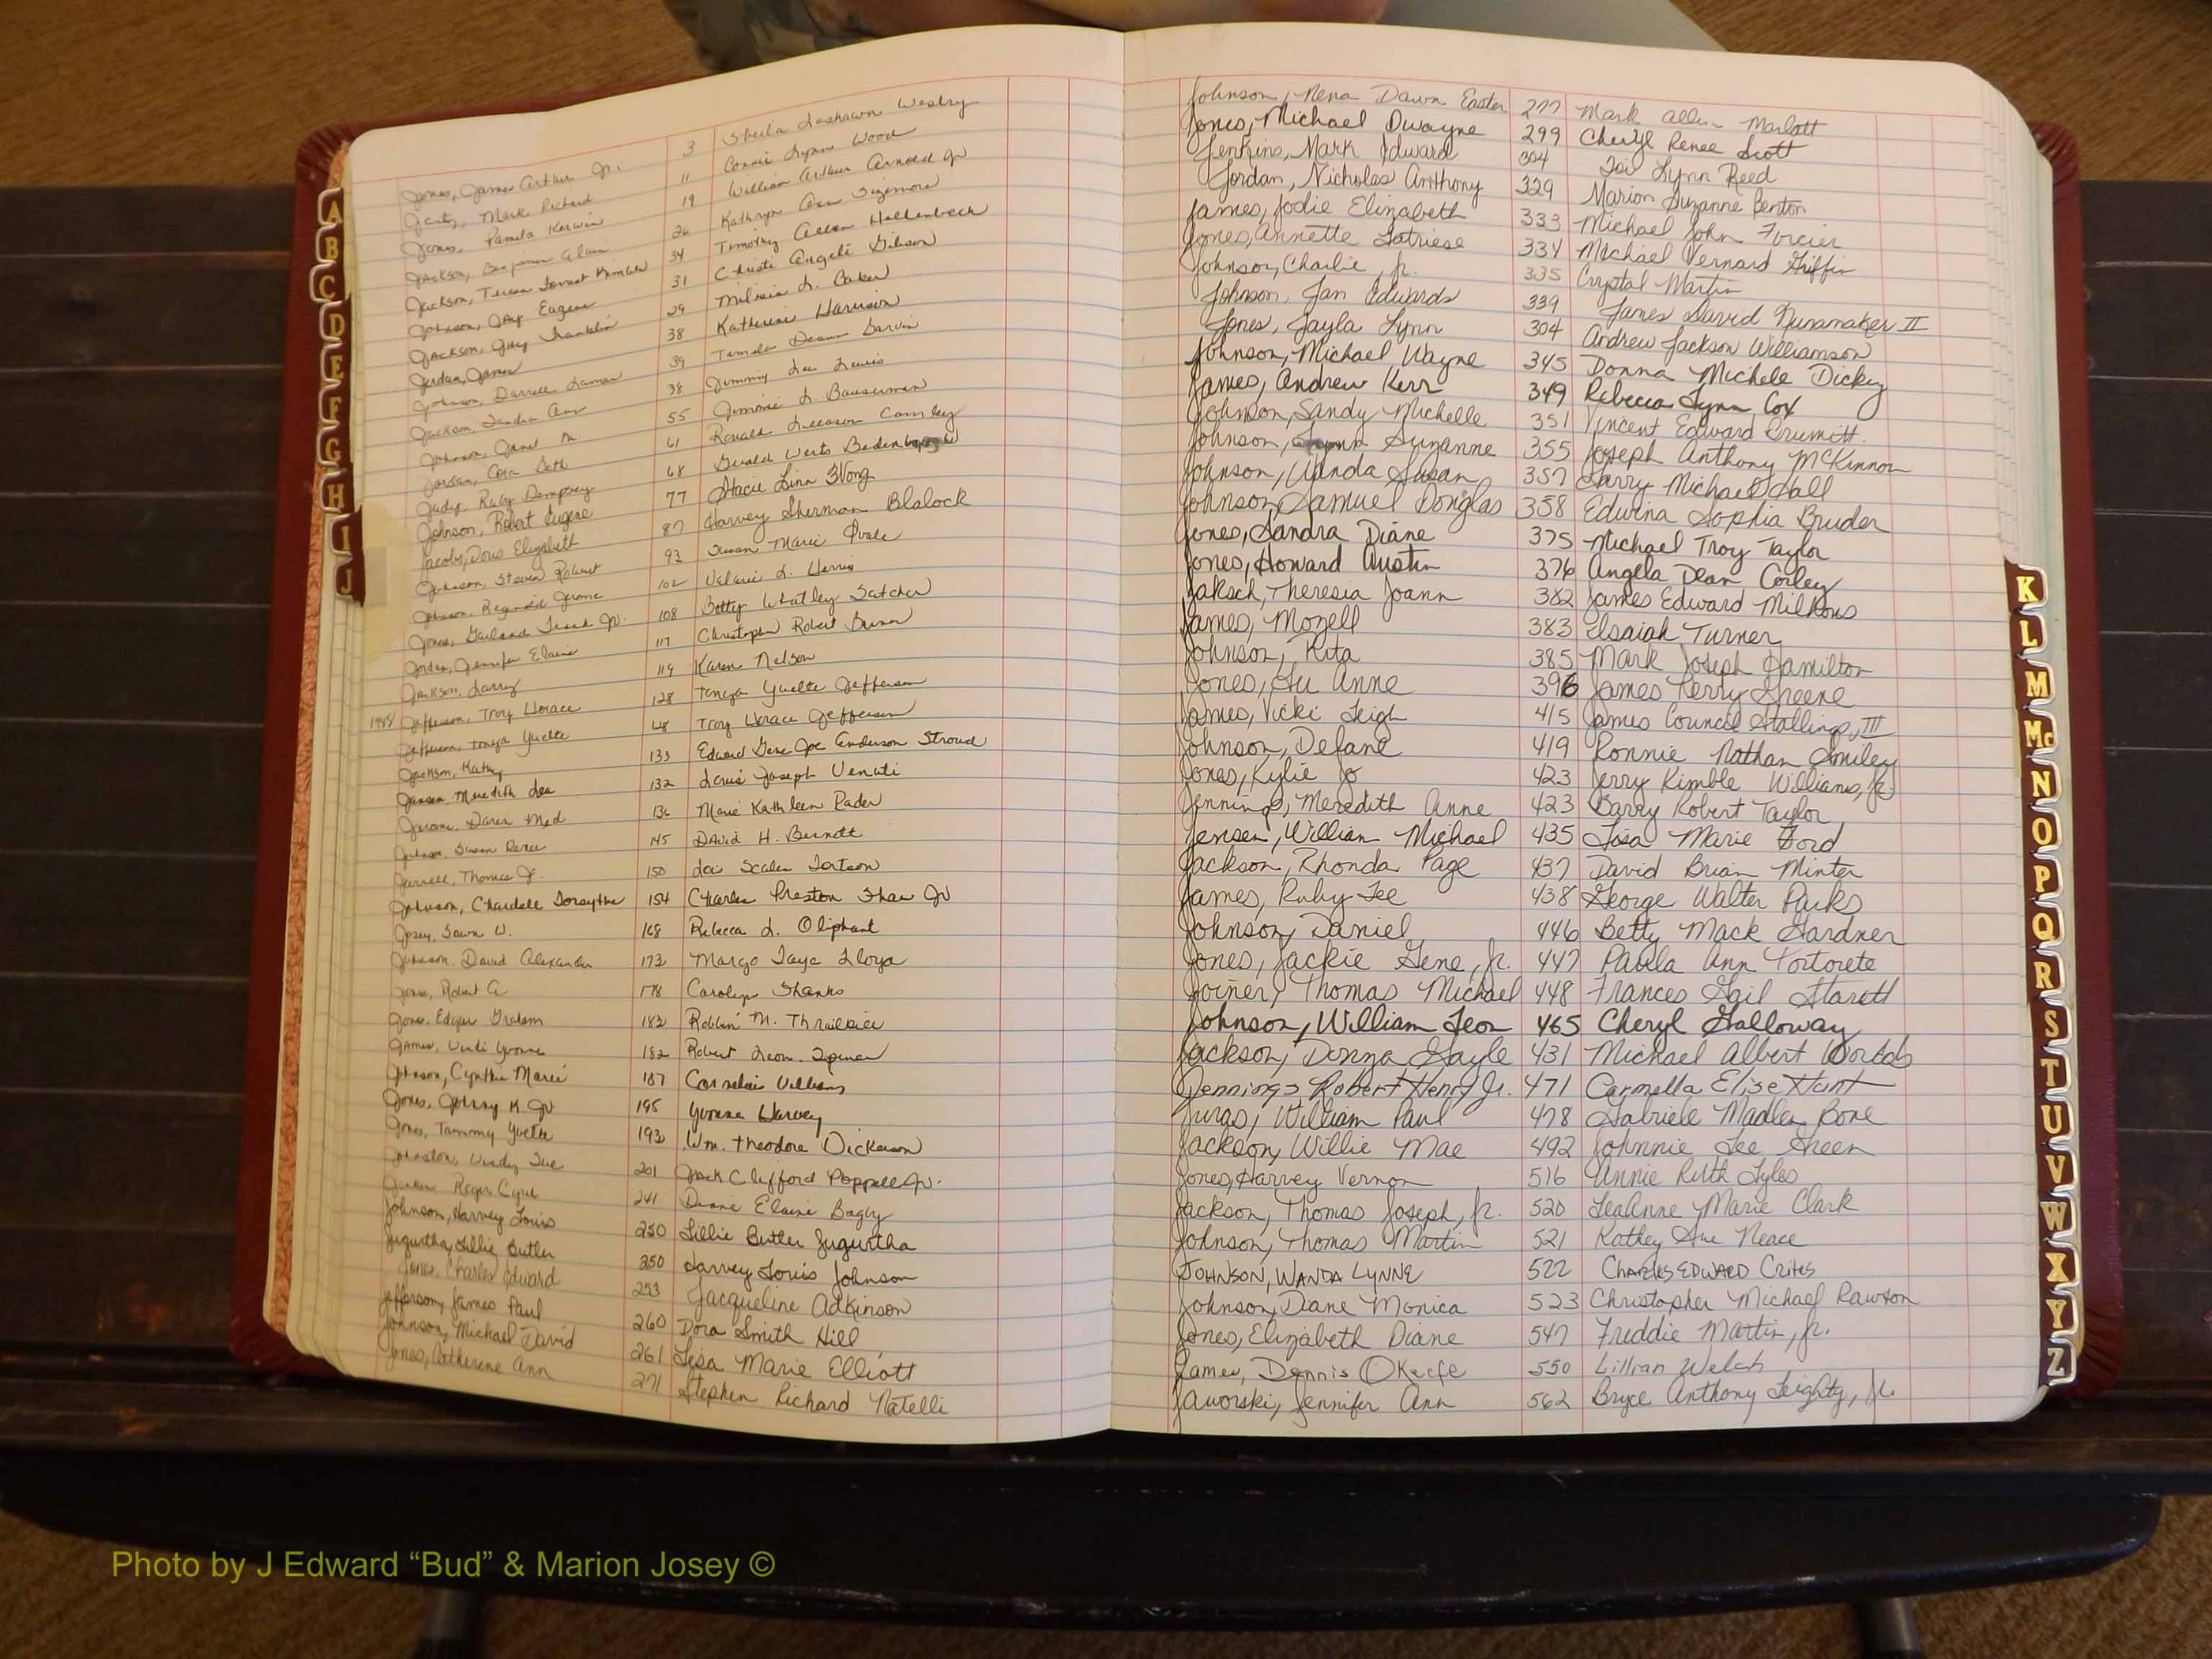 Jones, James Arthur Jr. 3 Sheila Lashawn Wesley
Jantz, Mark Richard 11 Connie Lynn Wood
Jones, Pamela Kerwin 19 William Arthur Arnold Jr
Jackson, Benjamin Alan 26 Kathryn Ann Sizemore
Jackson, Teresa Forrest Kimbler 34 Timothy Allen Hallenbeck
Johnson, Jay Eugene 31 Christi Angeli Gibson
Jackson, Guy Franklin 29 Melisia L. Baker
Jordan, James 38 Katherine Harrison
Johnson, Darrell Lamar 39 Tamela Deann Darvin
Jackson, Sandra Ann 38 Jimmy Lee Lewis
Johnson, Janet M. 55 Jimmie L. Bauserman
Jordan, Cora Beth 61 Ronald Camley
Judy, Ruby Dempsey 68 Gerald Werts
Johnson, Robert Eugene 77 Stacie Linn Wong
Jacobs, Doris Elizabeth 87 Harvey Sherman Blalock
Johnson, Steven Robert 92 Susan Marie
Johnson, Reginald Jerome 102 Valarie L. Harris
Jones, Garland Jr. 108 Betty Whatley Satcher
Jordan, Jennifer Elaine 117 Christopher Robert Bunn
Jackson, Larry 119 Karen Nelson
Jefferson, Troy Horace 128 Tonya Yvette Jefferson
Jefferson, Tonya Yvette 128 Troy Horace Jefferson
Jackson, Kathy 133 Edward Gene Joe Anderson Stroud
Jansen, Meredith Lea 132 Louis Joseph Venuti
136 Marie Kathleen Rader
Johnson, Susan Renee 145 David H. Burnett
Jarrell, Thomas J. 150 Lois Scales
Johnson, Chardelle Forsythe 154 Charles Preston Shaw Jr
Josey, Dawn W. 168 Rebecca L. Oliphant
Johnson, David Alexander 172 Margo Faye Lloyd
Jones, Robert A 178 Carolyn Shanks
Jones, Edgar Graham 182 Robbin M.
James, Yvonne 182 Robert Leon
Johnson, Cynthia Marie 187 Cornelius Williams
Jones, Johnny K. Jr 195 Yvonne Harvey
Jones, Tammy Yvette 193 Wm. Theodore Dickerson
Johnston, Sue 201 Jack Clifford Poppell Jr.
Roger Cyril 241 Diane Elaine Bagby
Johnson, Harvey Louis 250 Lillie Butler Jugurtha
Jugurtha, Lillie Butler 250 Harvey Louis Johnson
Jones, Charles Edward 253 Jacqueline Adkinson
Jefferson, James Paul 260 Dora Smith Hill
Johnson, Michael David 261 Lisa Marie Elliott
Jones, Catherine Ann 271 Stephen Richard Natelli
Johnson, Nena Dawn Easter 277 Mark Allen Marlatt
Jones, Michael Dwayne 299 Cheryl Renee Scott
Jenkins, Mark Edward 304 Lynn Reed
Jordan, Nicholas Anthony 329 Marion Suzanne Benton
James, Jodie Elizabeth 333 Michael John Forcier
Jones, Annette Latriese 334 Michael Vernard Griffin
Johnson, Charlie, Jr. 335 Crystal Martin
Johnson, Jan Edwards 339 James David Nunamaker II
Jones, Jayla Lynn 304 Andrew Jackson Williamson
Johnson, Michael Wayne 345 Donna Michele Dickey
James, Andrew Kerr 349 Rebecca Lynn Cox
Johnson, Sandy Michelle 351 Vincent Edward Brumitt
Johnson, Lynn Suzanne 355 Joseph Anthony McKinnon
Johnson, Wanda Susan 357 Larry Michael Hall
Johnson, Samuel Douglas 358 Edwina Sophia Bruder
Jones, Sandra Diane 375 Michael Troy Taylor
Jones, Howard Austin 376 Angela Dean Corley
Jaksch, Theresia Joann 382 James Edward Milhous
James, Mozell 383 Isaiah Turner
Johnson, Rita 385 Mark Joseph Hamilton
Jones, Su Anne 396 James Perry Greene
James, Vicki Leigh 415 James Council Stallings, III
Johnson, Defane 419 Ronnie Nathan Smiley
Jones, Kylie Jo 423 Jerry Kimble Williams, Jr.
Jennings, Meredith Anne 423 Barry Robert Taylor
Jensen, William Michael 435 Lisa Marie Ford
Jackson, Rhonda Page 437 David Brian Minter
James, Ruby Lee 438 George Walter Parks
Johnson, Daniel 446 Betty Mack Gardner
Jones, Jackie Gene, Jr. 447 Paula Ann Tortorete
Joiner, Thomas Michael 448 Frances Gail Starett
Johnson, William Leon 465 Cheryl Galloway
Jackson, Donza Gayle 431 Michael Albert Worlds
Jennings Robert Henry Jr. 471 Carmella Elise Hunt
Juras, William Paul 478 Gabriele Madlen Bone
Jackson, Willie Mae 492 Johnnie Lee Green
Jones, Harvey Vernon 516 Annie Ruth Lyles
Jackson, Thomas Joseph, Jr. 520 LeaAnne Marie Clark
Johnson, Thomas Martin 521 Kathey Sue Neace
JOHNSON, WANDA LYNNE 522 CHARLES EDWARD Crites
Johnson, Diane Monica 523 Christopher Michael Rawson
Jones, Elizabeth Diane 547 Freddie Martin, Jr.
James, Dennis O'Keefe 550 Lillian Welch
Jaworski, Jennifer Ann 562 Bryce Anthony Leighty, Jr.
A
B
C
D
E
F
G
H
I
J
K
L
M
Mc
N
O
P
Q
R
S
T
U
V
W
X
Y
Z
Photo by J Edward “Bud” & Marion Josey ©